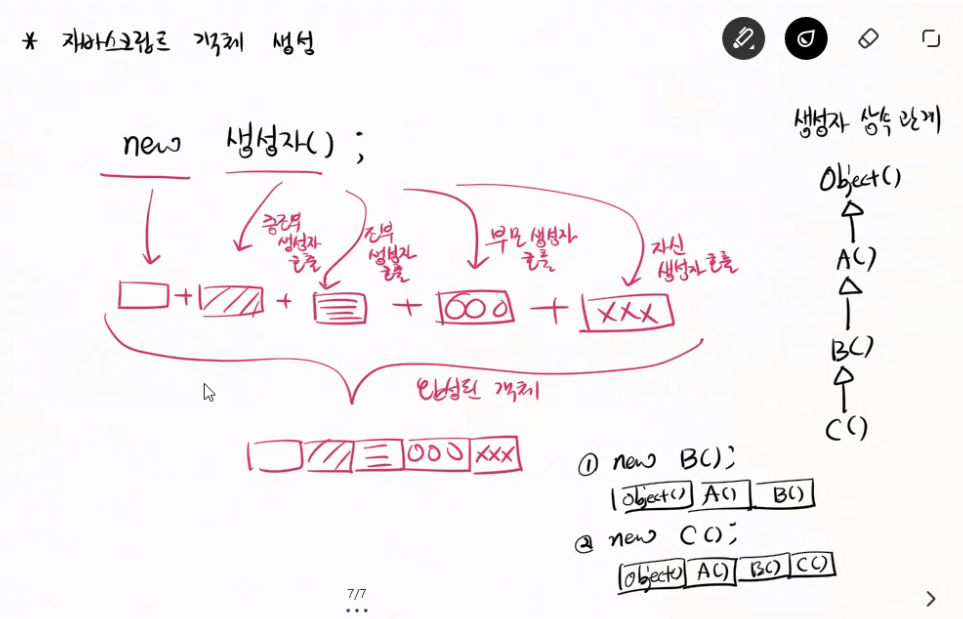 * 자바스크립트 객체 생성
new 생성자();
증조부
생성자
호출
조부
생성자
호출
부모 생성자
호출
자신
생성자 호출
+ + + +
000
xxx
완성된 객체
000 xxx
생성자 상속 관계
Object()
A()
B()
C()
① new B();
Object() A() B()
② new C();
Object() A() B() C()
7/7